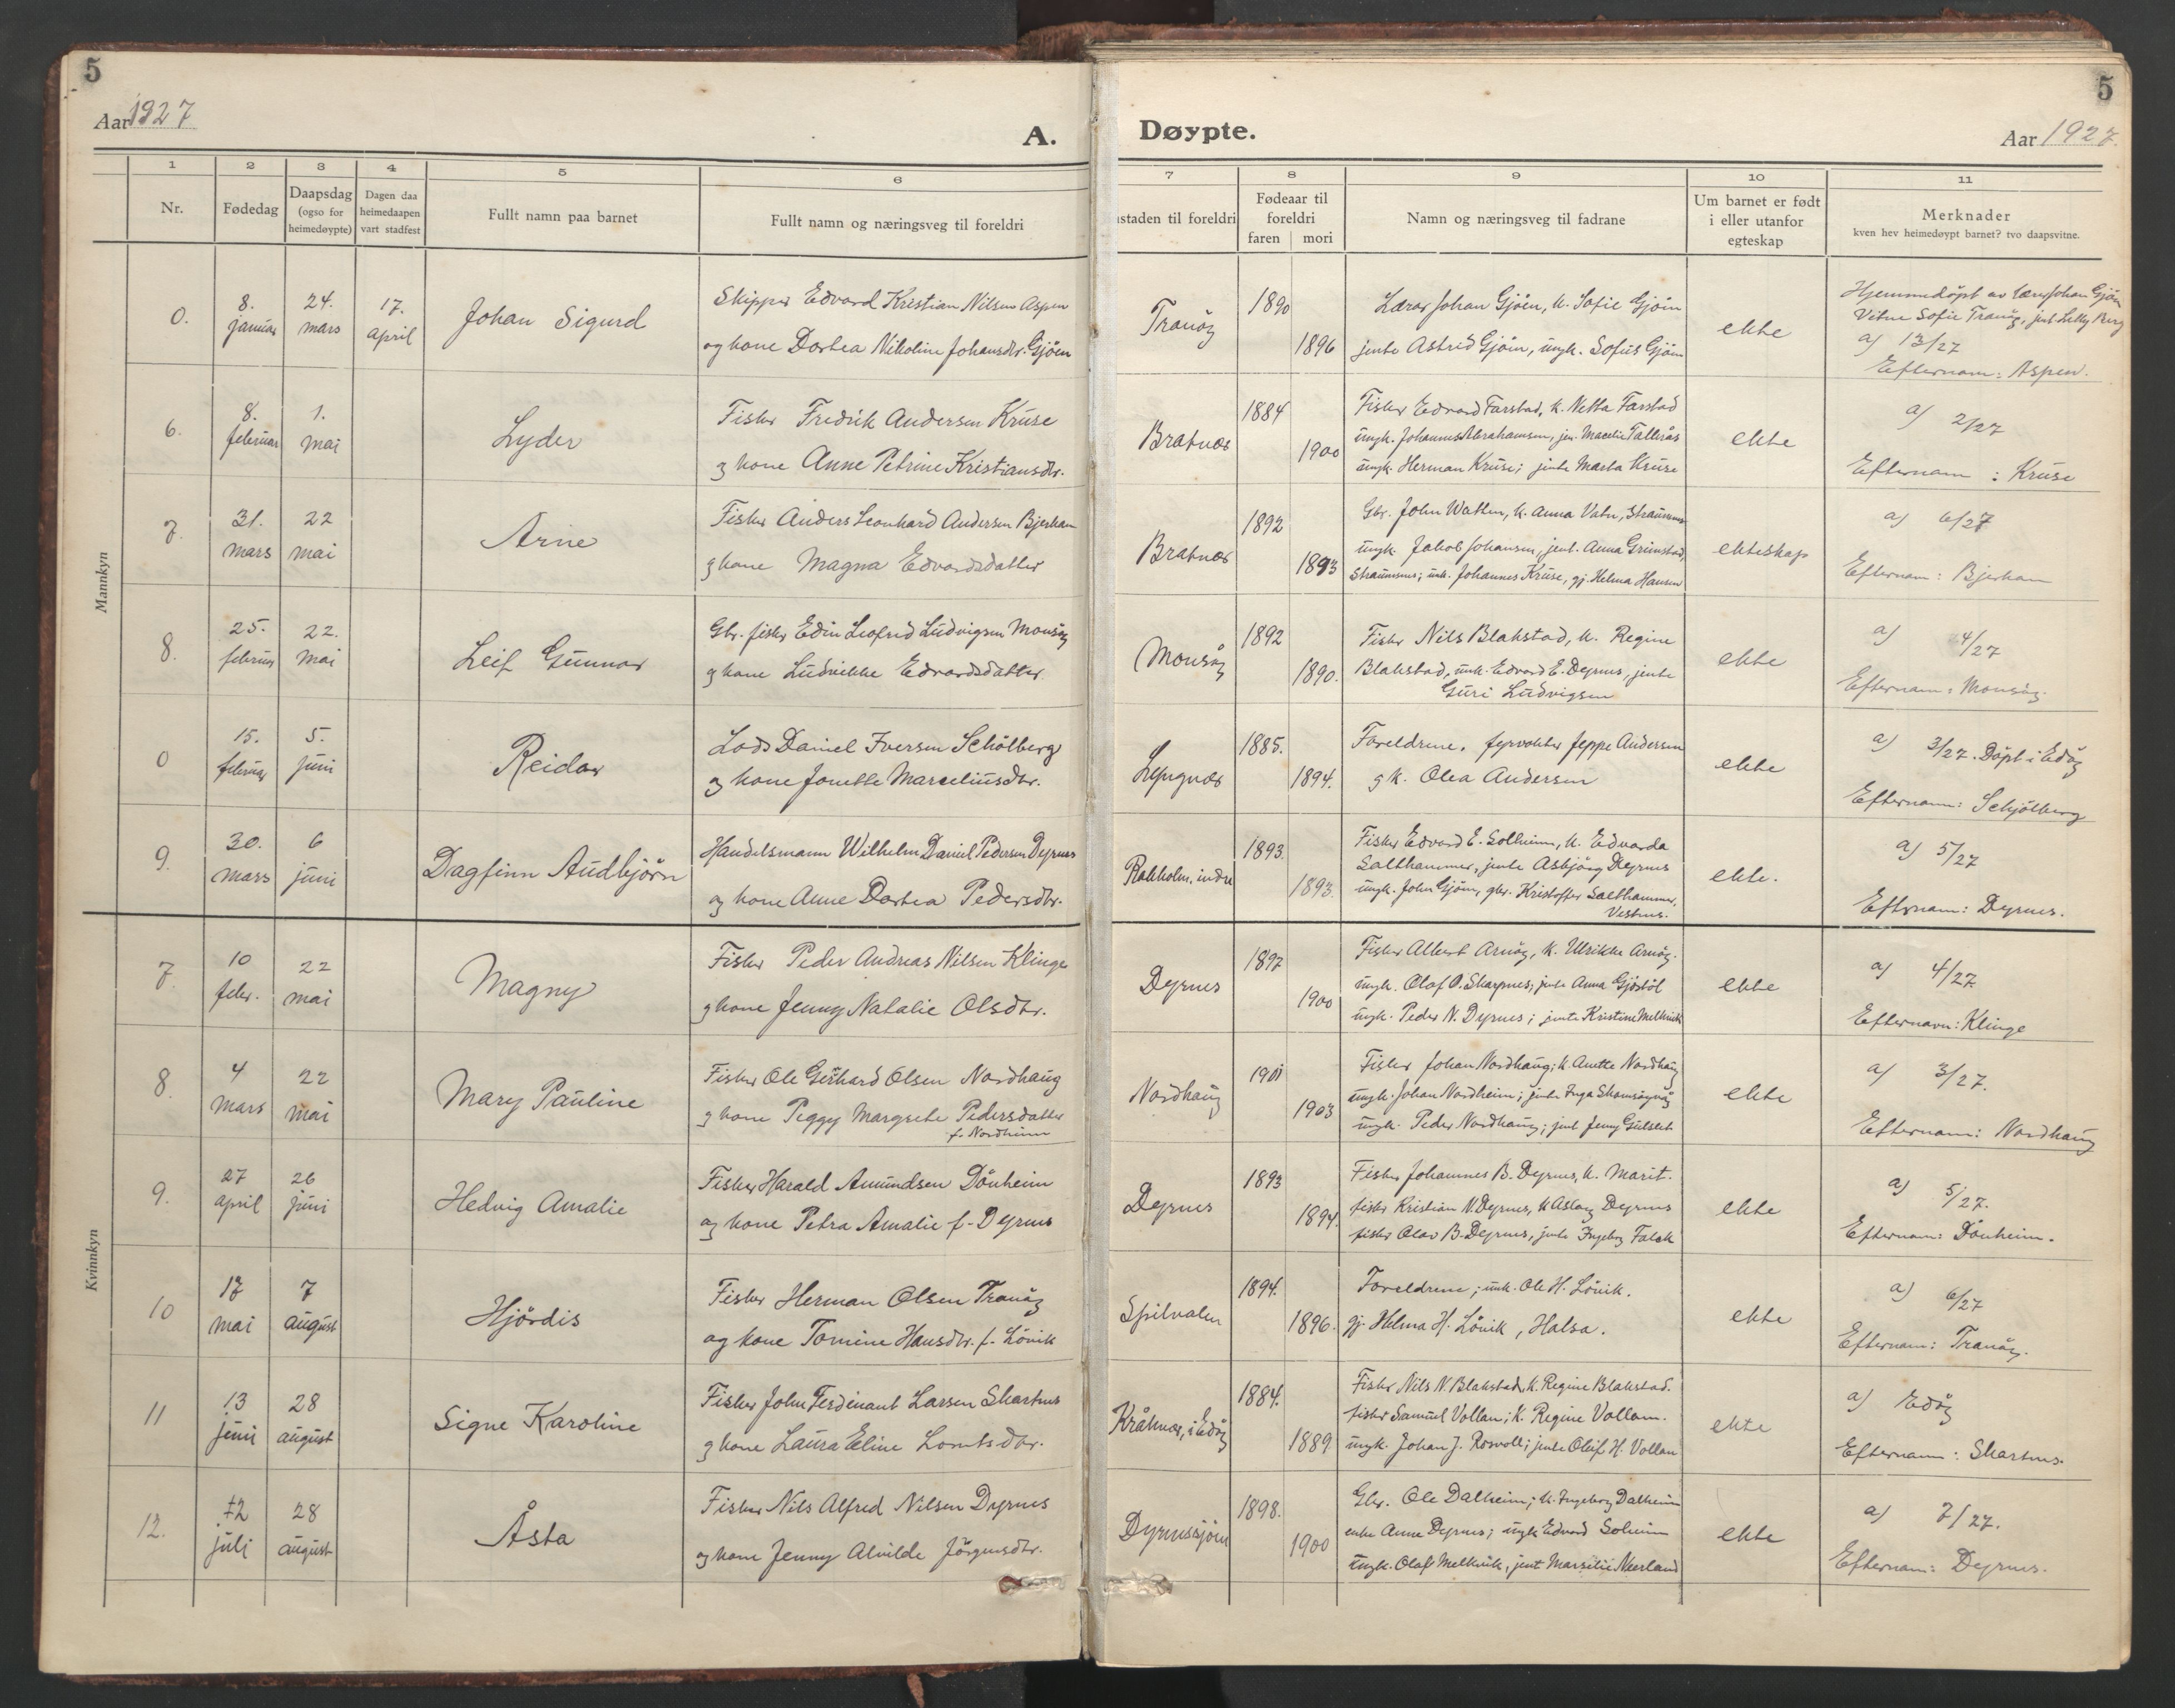 5
5
Aar 1927
A.
Døypte.
Aar 1927.
1 2 3 4 5 6 7 8 9 10 11
Nr.
Fødedag
Daapsdag (ogso for heimedøypte)
Dagen daa heimedaapen vart stadfest
Fullt namn paa barnet
Fullt namn og næringsveg til foreldri
ustaden til foreldri
Fødeaar til foreldri
faren mori
Namn og næringsveg til fadrane
Um barnet er født i eller utanfor egteskap
Merknader
kven hev heimedøypt barnet? tvo daapsvitne.
Mannkyn
0. 8. januar 24. mars 17. april
Johan Sigurd
Skipper Edvard Kristian Nilsen Aspen
og kone Dortea Nikoline Johansdtr. Gjöen
Tranöy
1890
1896
Lærar Johan Gjöen, k. Sofie Gjöen
jente Astrid Gjöen, ungk. Sofus Gjöen
ekte
Hjemmedöpt av lærer Johan Gjöen
Vitne Sofie Tranöy, jent Lelly Berg
a) 13/27
Efternam: Aspen.
6. 8. februar 1. mai
Lyder
Fisker Fredrik Andersen Kruse
og kone Anne Petrine Kristiansdtr.
Bratnes
1884
1900
Fisker Edvard Farstad, k. Netta Farstad
ungk. Johannes Abrahamsen, jen. Marelie Tallerås
ungk. Herman Kruse; jente Marta Kruse
ekte
a) 2/27
Efternam: Kruse
7. 31. mars 22 mai
Arne
Fisker Anders Leonhard Andersen Bjerkan
og kone Magna Edvardsdatter
Bratnes
1892
1893
Gbr. John Watten, k. Anna Vatn, Straumsnes
ungk. Jakob Johansen, jent. Anna Grimstad,
Straumsnes; unk. Johannes Kruse, gj. Helma Hansen
ekteskap
a) 6/27
Efternam: Bjerkan
8. 25. februar 22. mai
Leif Gunnar
Gbr. fisker Edin Leofred Ludvigsen Monsöy
og kone Ludvikke Edvardsdatter.
Monsöy
1892
1890.
Fisker Nils Blakstad, k. Regine
Blakstad, unk. Edvard E. Dyrnes, jente
Guri Ludvigsen
ekte
a) 4/27
Efternam: Monsöy.
0 15. februar 5. juni
Reidar
Lods Daniel Iversen Schölberg
og kone Jonette Marseliusdtr.
Lyngnes
1885.
1894.
Foreldrene. fyrvokter Jeppe Andersen
og k. Olea Andersen
ekte
a) 3/27. Döpt i Edöy
Efternam: Schjölberg
9. 30. mars 6 juni
Dagfinn Audbjörn
Handelsmann Wilhelm Daniel Pedersen Dyrnes
og kone Anne Dortea Pedersdtr.
Rokholm, indre
1893.
1893.
Fisker Edvard E. Solheim, k. Edvarda
Salthammer, jente Asbjörg Dyrnes
ungk. John Gjöen, gbr. Kristoffer Salthammer,
Vestnes.
ekte.
a) 5/27
Efternam: Dyrnes.
Kvinnkyn
7. 10 febr. 22 mai
Magny
Fisker Peder Andreas Nilsen Klinge
og kone Jenny Natalie Olsdtr.
Dyrnes
1897
1900
Fisker Albert Arnöy, k. Ulrikke Arnöy.
ungk. Olaf O. Skarpnes; jente Anna Gjöstöl
ungk. Peder N. Dyrnes; jente Kristine Melkvik
ekte
a) 4/27
Efternavn: Klinge
8. 4 mars 22 mai
Mary Pauline
Fisker Ole Gerhard Olsen Nordhaug
og kone Peggy Margrete Pedersdatter
f. Nordheim
Nordhaug
1901
1903
Fisker Johan Nordhaug; k. Anette Nordhaug
ungk. Johan Nordheim; jente Inga Skomsöyvåg
ungk. Peder Nordhaug; jent Jenny Gulslet
ekte
a) 3/27.
Efternam: Nordhaug
9. 27 april 26 juni
Hedvig Amalie
Fisker Harald Amundsen Dönheim
og kone Petra Amalie f. Dyrnes
Dyrnes
1893
1894.
Fisker Johannes B. Dyrnes, k. Marit.
fisker Kristian N. Dyrnes, k Aslaug Dyrnes
fisker Olav B. Dyrnes, jente Ingeborg Falck
ekte
a) 5/27.
Efternam: Dönheim.
10 17 mai 7 august
Hjördis
Fisker Herman Olsen Tranöy
og kone Tomine Hansdtr. f. Lövik
Spilvalen
1894.
1896.
Foreldrene; unk. Ole H. Lövik.
gj. Helma H. Lövik, Halsa.
ekte
a) 6/27
Efternam: Tranöy.
11 13 juni 28 august
Signe Karoline
Fisker John Ferdinant Larsen Skartnes
og kone Laura Eline Lorntsdtr.
Kråknes, i Edöy
1884.
1889
Fisker Nils N. Blakstad, k. Regine Blakstad.
fisker Samuel Vollan; k. Regine Vollan.
ungk. Johan J. Rosvoll; jente Oleif H. Vollan
ekte
a) Edöy
Efternam: Skartnes.
12. 12 juli 28 august
Åsta
Fisker Nils Alfred Nilsen Dyrnes
og kone Jenny Alvilde Jörgensdtr.
Dyrnessjöen
1898.
1900
Gbr. Ole Dalheim; k. Ingeborg Dalheim
enke Anne Dyrnes; ungk Edvard Solheim
ungk. Olaf Melkvik, jent Marsilie Neerland
ekte
a) 7/27.
Efternam: Dyrnes.